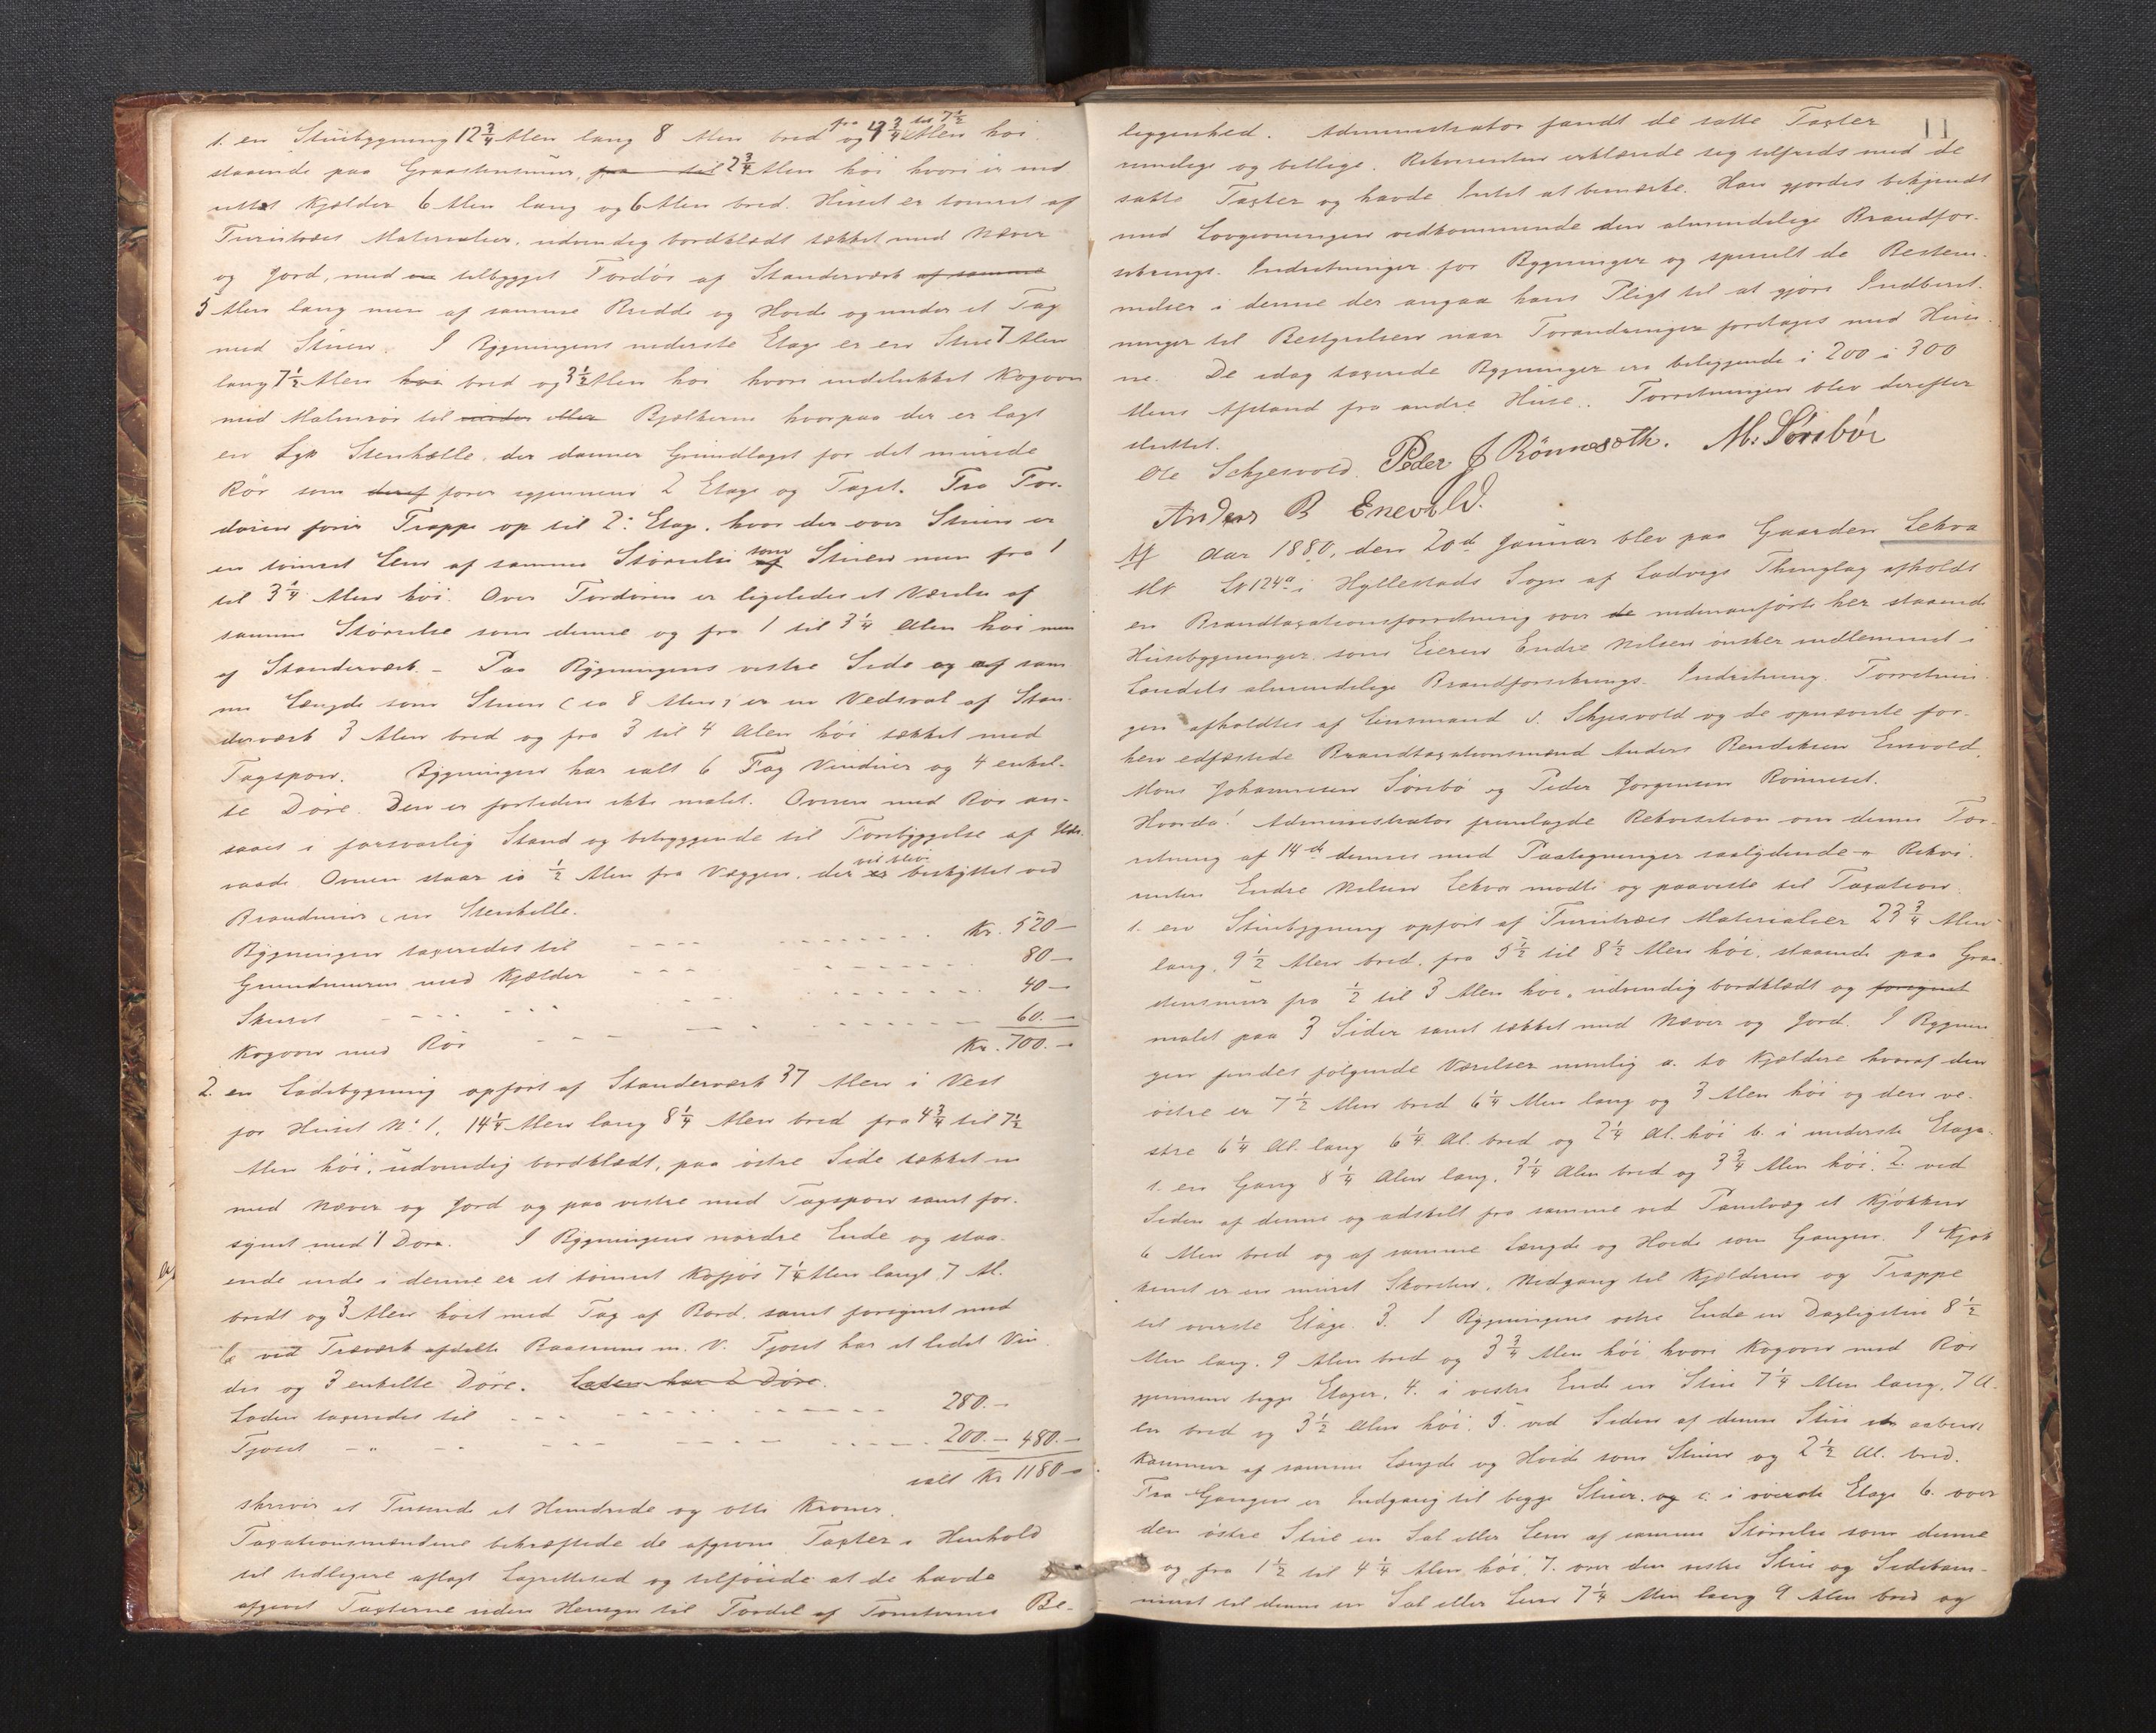 1. en Stuebygning 12 3/4 Alen lang 8 Alen bred fra og 4 3/4 til 7 1/2 Alen høi
staaende paa Graastensmuur, fra til 2 3/4 Alen høi hvori er ind
rettet Kjælder 6 Alen lang og 6 Alen bred. Huset er tømret af
Furutræes Materialier, udvendig bordklædt tækket med Næver
og Jord, med en tilbygget Fordør af Standerværk af samme
5 Alen lang men af samme Bredde og Høide og under et Tag
med Stuen. I Bygningens nederste Etage er en Stue 7 Alen
lang 7 1/2 Alen høi bred og 3 1/2 Alen høi hvori indelukket Kogovn
med Malmrør til under eller Bjælkerne hvorpaa der er lagt
en Stenhelle, der danner Grundlaget for det murede
Rør som deraf fører igjennem 2 Etage og Taget. Fra For-
døren fører Trappe op til 2: Etage, hvor der over Stuen er
en tømret Lem af samme Størrelse som af Stuen men fra 1
til 3 1/4 Alen høi. Over Fordøren er ligeledes et Værelse af
samme Størrelse som denne og fra 1 til 3 1/4 Alen høi men
af Standerværk. – Paa Bygningens vestre Side og af sam
me Længde som Stuen (ca 8 Alen) er en Vedsval af Stan-
derværk 3 Alen bred og fra 3 til 4 Alen høi tækket med
Tagspon. Bygningen har ialt 6 Fag Vinduer og 4 enkel-
te Døre. Den er fortiden ikke malet. Ovnen med Rør an-
saaes i forsvarlig Stand og betryggende til Forebyggelse af Ilds-
vaade. Ovnen staar ca 1/2 Alen fra Væggen, der er vil blive beskyttet ved
Brandmuur (en Stenhelle.
Bygningen taxeredes til - - - - Kr. 520 –
Grundmuren med Kjælder - - - 80 –
Skuret - - - - 40 –
Kogovn med Rør - - - 60. –
Kr. 700. –
2. en Ladebygning opført af Standerværk 37 Alen i Vest
for Huset No 1, 14 1/4 Alen lang 8 1/4 Alen bred fra 4 3/4 til 7 1/2
Alen høi, udvendig bordklædt, paa østre Side tækket m
med Næver og Jord og paa vestre med Tagspon samt for-
synet med 1 Dør. I Bygningens nordre Ende og staa-
ende inde i denne er et tømret Kofjøs 7 1/4 Alen langt 7 Al.
bredt og 3 Alen høit med Tag af Bord, samt forsynet med
6 ved Træværk afdelte Baasrum m. V. Fjøset har et lidet Vin
du og 3 enkelte Døre. Laden har 2 Døre.
Laden taxeredes til - - - 280. –
Fjøset – " – - - - 200. – 480. –
ialt Kr 1180 –
skriver et Tusinde et Hundrede og otti Kroner.
Taxationsmændene bekræftede de afgivne Taxter i Henhold
til tidligere aflagt Lagrettesed og tilføiede at de havde
afgivet Taxterne uden Hensyn til Fordel af Tomternes Be-
11
liggenhed. Administrator fandt de satte Taxter
rimelige og billige. Rekvirenten erklærede sig tilfreds med de
satte Taxter og havde Intet at bemærke. Han gjordes bekjendt
med Lovgivningen vedkommende den almindelige Brandfor-
sikrings-Indretninger for Bygninger og specielt de Bestem-
melser i denne der angaa hans Pligt til at gjøre Indberet-
ninger til Bestyrelsen naar Forandringer foretages med Huse
ne. De idag taxerede Bygninger ere beliggende i 200 à 300
Alens Afstand fra andre Huse. Forretningen blev derefter
sluttet.
Ole Schjesvold. Peder J Rönnesæth. M. Sørebøe
Anders B Enevold.
Aar 1880, den 20de Januar blev paa Gaarden Lekva
M No L No 124a i Hyllestads Sogn af Ladvigs Thinglag afholdt
en Brandtaxationsforretning over de nedenanførte her staaende
Husebygninger, som Eieren Endre Nilsen ønsker indlemmet i
Landets almindelige Brandforsikrings-Indretning. Forretnin-
gen afholdtes af Lensmand O. Schjesvold og de opnævnte for-
hen edfæstede Brandtaxationsmænd Anders Bendiksen Enevold,
Mons Johannesen Sørebø og Peder Jørgensen Rønneset.
Hvorda! Administrator fremlagde Rekvisition om denne For-
retning af 14de dennes med Paategninger saalydende – Rekvi-
renten Endre Nilsen Lekva mødte og paaviste til Taxation
1. en Stuebygning opført af Furutræes Materialier 23 3/4 Alen
lang, 9 1/2 Alen bred, fra 5 1/2 til 8 1/2 Alen høi, staaende paa Graa-
stensmuur fra 1/2 til 3 Alen høi, udvendig bordklædt og forsynet
malet paa 3 Sider samt tækket med Næver og Jord. I Bygnin
gen findes følgende Værelser nemlig a. to Kjældere hvoraf den
østre er 7 1/2 Alen bred 6 1/4 Alen lang og 3 Alen høi og den ve-
stre 6 1/4 Al. lang 6 1/4 Al. bred og 2 1/4 Al. høi b. i underste Etage
1. en Gang 8 1/4 Alen lang, 3 1/4 Alen bred og 3 3/4 Alen høi. 2. ved
Siden af denne og adskilt fra samme ved Panelvæg et Kjøkken
6 Alen bred og af samme Længde og Høide som Gangen. I Kjøk
kenet er en muret Skorsten, Nedgang til Kjælderen og Trappe
til øverste Etage. 3. I Bygningens østre Ende en Dagligstue 8 1/2
Alen lang, 9 Alen bred og 3 3/4 Alen høi hvori Kogovn med Rør
gjennem begge Etager. 4. i vestre Ende en Stue 7 1/4 Alen lang, 7 A-
len bred og 3 1/2 Alen høi. 5. ved Siden af denne Stue et aabent
Kammer af samme Længde og Høide som Stuen og 2 1/2 Al. bred.
Fra Gangen er Indgang til begge Stuer. og c. i øverste Etage 6. over
den østre Stue en Sal eller Lem af samme Størrelse som denne
og fra 1 1/2 til 4 1/4 Alen høi. 7. over den vestre Stue og Sidekam-
meret til denne en Sal eller Lem 7 1/4 Alen lang 9 Alen bred og